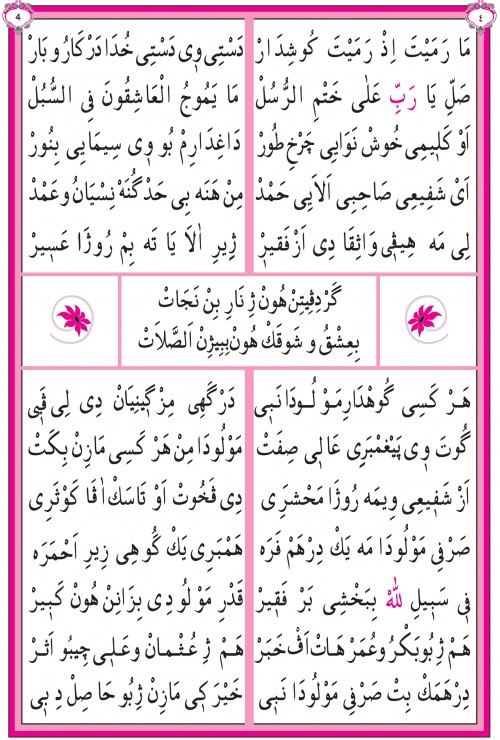 4
٤
مَا رَمَيْتَ اِذْ رَمَيْتَ كُوشِدَارْ دَسْتِى وِى دَسْتِى خُدَا دَرْ كَارُو بَارْ
صَلِّ يَا رَبِّ عَلٰى خَتْمِ الرُّسُلْ مَا يَمُوجُ الْعَاشِقُونَ فِى السُّبُلْ
اَوْ كَلِيمِى خُوشْ نَوَايِى چَرْخِ طُورْ دَاغِدَارِمْ بُو وِى سِيمَايِى بِنُورْ
اَىْ شَفِيعِى صَاحِبِى اَلَايِى حَمْدْ مِنْ هَنَه بِى حَدْ گُنَهْ نِسْيَانُ و عَمْدْ
لِى مَه هِيڤِى وَاثِقَا دِى اَزْ فَقِيرْ ژِيرِ اٰلَا يَا تَه بِمْ رُوژَا عَسِيرْ
گَرْ دِڤِيتِنْ هُونْ ژِ نَارِ بِنْ نَجَاتْ
بِعِشْقُ و شَوقَكْ هُونْ بِبِيژِنْ اَلصَّلَاتْ
هَرْ كَسِى گُوهْدَارِ مَوْلُودَا نَبِى دَرْگَهِى مِزْگِينِيَانْ دِى لِى ڤَبِى
گُوتْ وِى پَيْغَمْبَرِى عَالِى صِفَتْ مَوْلُودَا مِنْ هَرْ كَسِى مَازِنْ بِكَتْ
اَزْ شَفِيعِى وِيمَه رُوژَا مَحْشَرِى دِى ڤَخُوتْ اَوْ تَاسَكْ اٰڤَا كَوْثَرِى
صَرْفِى مَوْلُودَا مَه يَكْ دِرْهَمْ فَرَه هَمْبَرِى يَكْ كُوهِى زِيرِ اَحْمَرَه
فِى سَبِيلِ للهْ بِبَخْشِى بَرْ فَقِيرْ قَدْرِ مَوْلُودِى بِزَانِنْ هُونْ كَبِيرْ
هَمْ ژِبُوبَكْرُ و عُمَرْ هَاتْ اَڤْ خَبَرْ هَمْ ژِ عُثْمَانْ وعَلِى چِيبُو اَثَرْ
دِرْهَمَكْ بِتْ صَرْفِى مَوْلُودَا نَبِى خَيْرَكِى مَازِنْ ژِبُو حَاصِلْ دِبِى